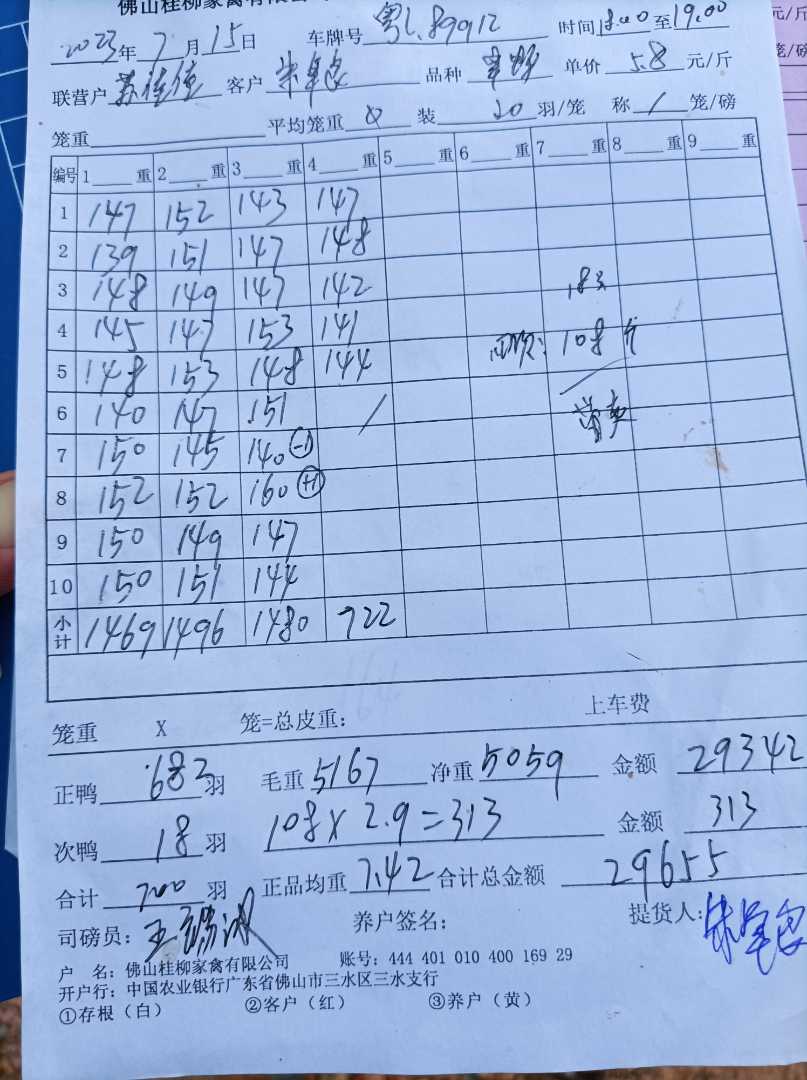 佛山桂柳家禽有限公
2023年7月15日 车牌号 粤L.89912 时间18.00至19.00
联营户 客户 品种 单价 5.8 元/斤
笼重 平均笼重 装 20 羽/笼 称 / 笼/磅
编号 1 重 2 重 3 重 4 重 5 重 6 重 7 重 8 重 9 重
1 147 152 143 147
2 139 151 147 148
3 148 149 147 142 18只
4 145 147 153 141 108斤
5 148 153 148 144
6 140 147 151 /
7 150 145 140 (-1)
8 152 152 160 (+1)
9 150 149 147
10 150 151 144
小计 1469 1496 1480 722
笼重 X 笼=总皮重: 上车费
正鸭 682 羽 毛重 5167 净重 5059 金额 29342
次鸭 18 羽 108 x 2.9 = 313 金额 313
合计 700 羽 正品均重 7.42 合计总金额 29655
司磅员: 养户签名: 提货人:
户 名: 佛山桂柳家禽有限公司 账号: 444 401 010 400 169 29
开户行: 中国农业银行广东省佛山市三水区三水支行
①存根（白） ②客户（红） ③养户（黄）
元/斤
笼/磅